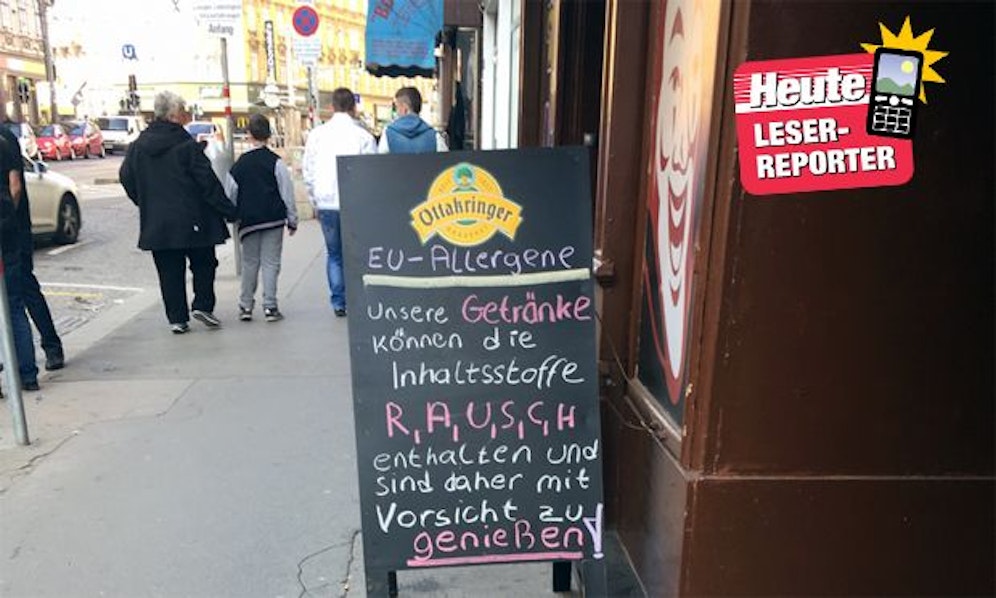 Anfang
U
Heute
LESER-
REPORTER
Ottakringer
BRAUEREI
EU-Allergene
Unsere Getränke
können die
Inhaltsstoffe
R,A,U,S,C,H
enthalten und
sind daher mit
Vorsicht zu
genießen!